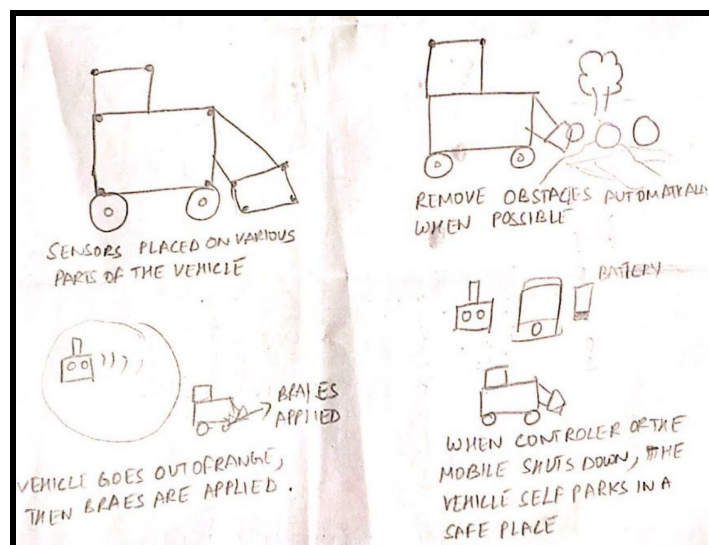 SENSORS PLACED ON VARIOUS
PARTS OF THE VEHICLE
REMOVE OBSTACLES AUTOMATICALLY
WHEN POSSIBLE
BRAKES
APPLIED
VEHICLE GOES OUT OF RANGE,
THEN BRAES ARE APPLIED.
BATTERY
WHEN CONTROLER OR THE
MOBILE SHUTS DOWN, THE
VEHICLE SELF PARKS IN A
SAFE PLACE